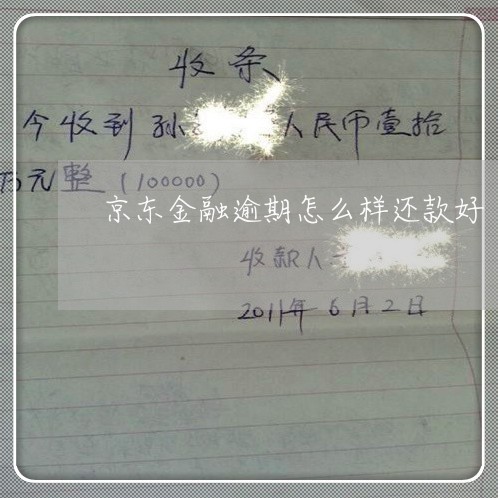 收条
今收到孙 人民币壹拾
万元整（100000）
京东金融逾期怎么样还款好
收款人
2011年6月2日